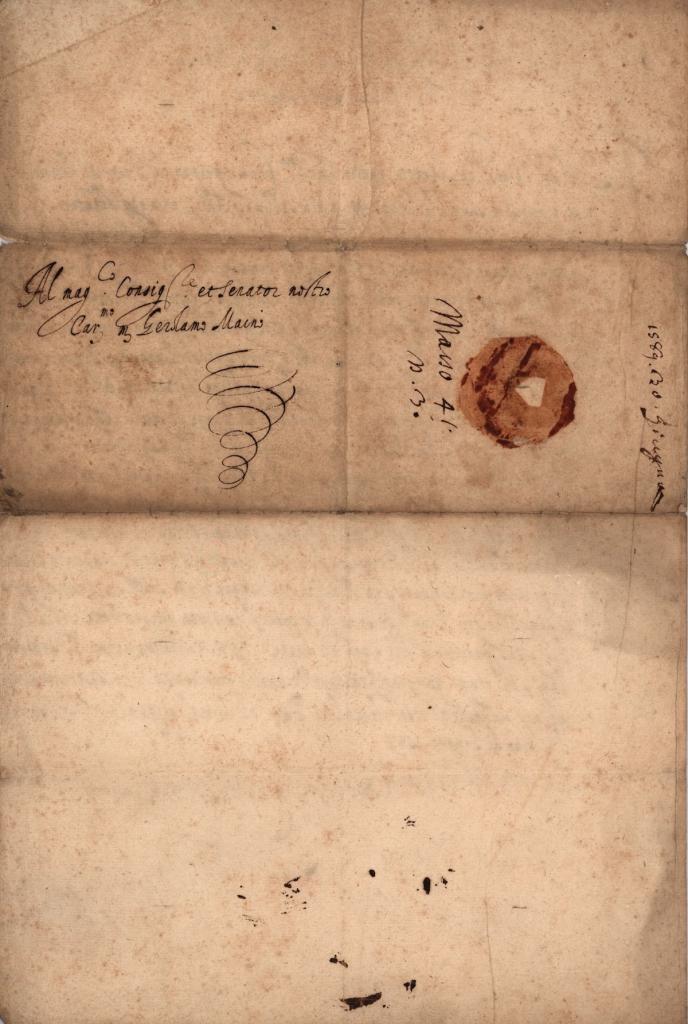 Al mag.co Consig.re et Senator nostro
Car.mo m. Gerolamo Maino
Mazzo 41
n. 3.
1589. 20. Giugno